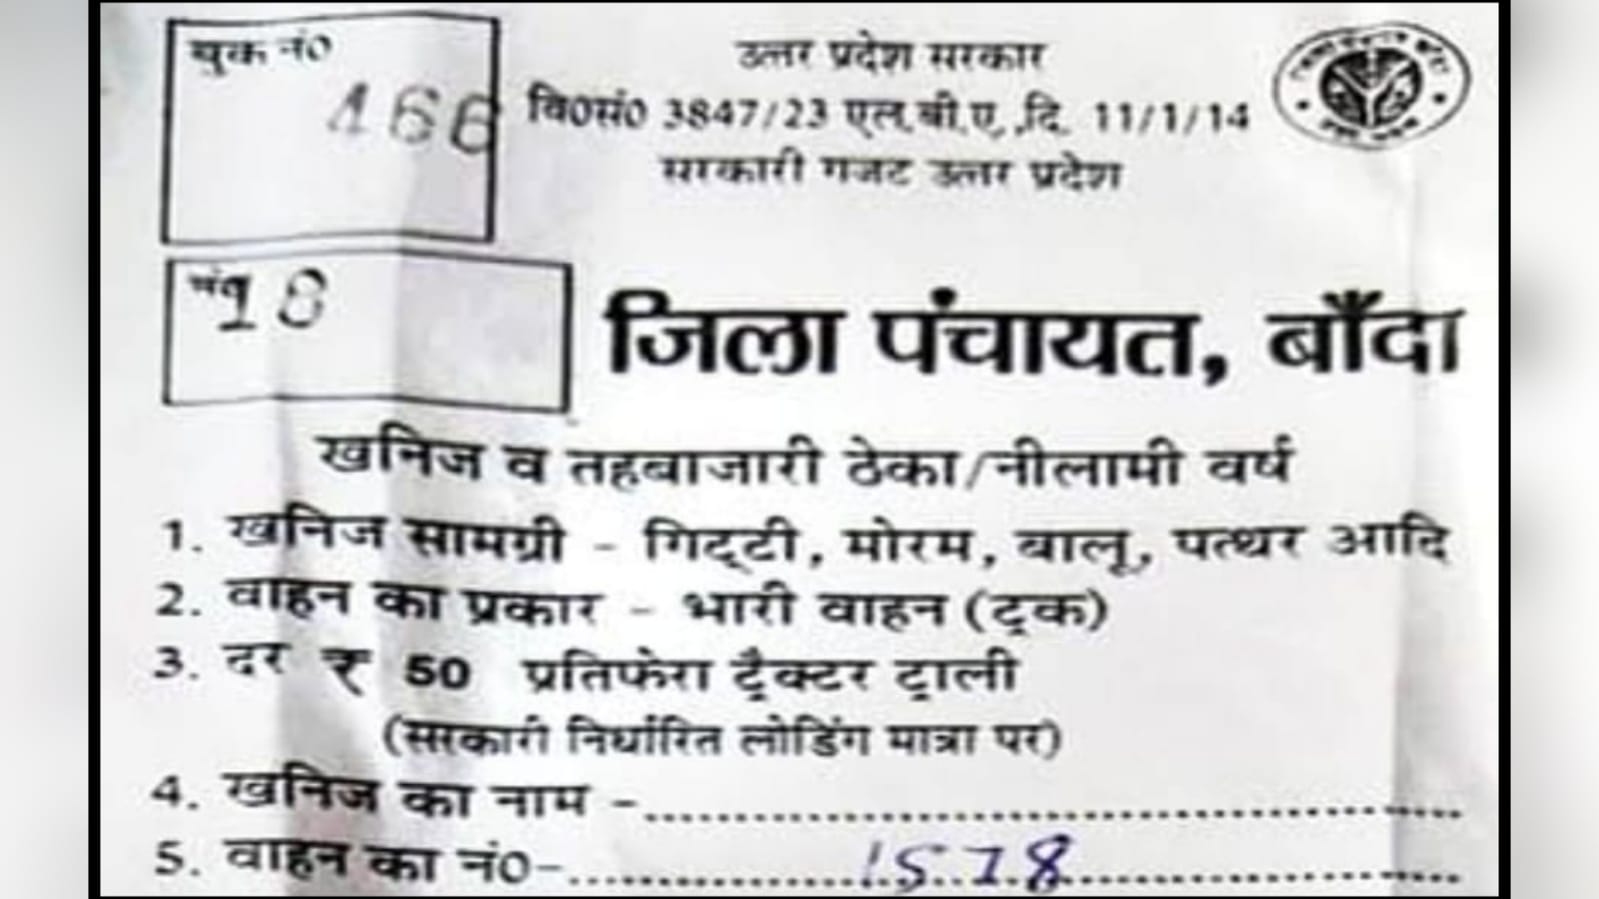 बुक नं0
466
उत्तर प्रदेश सरकार
वि0सं0 3847/23 एल.बी.ए.,दि. 11/1/14
सरकारी गजट उत्तर प्रदेश
18
जिला पंचायत, बाँदा
खनिज व तहबाजारी ठेका/नीलामी वर्ष
1. खनिज सामग्री - गिट्टी, मोरम, बालू, पत्थर आदि
2. वाहन का प्रकार - भारी वाहन (ट्रक)
3. दर ₹ 50 प्रतिफेरा ट्रैक्टर ट्राली
(सरकारी निर्धारित लोडिंग मात्रा पर)
4. खनिज का नाम -
5. वाहन का नं0- 1578